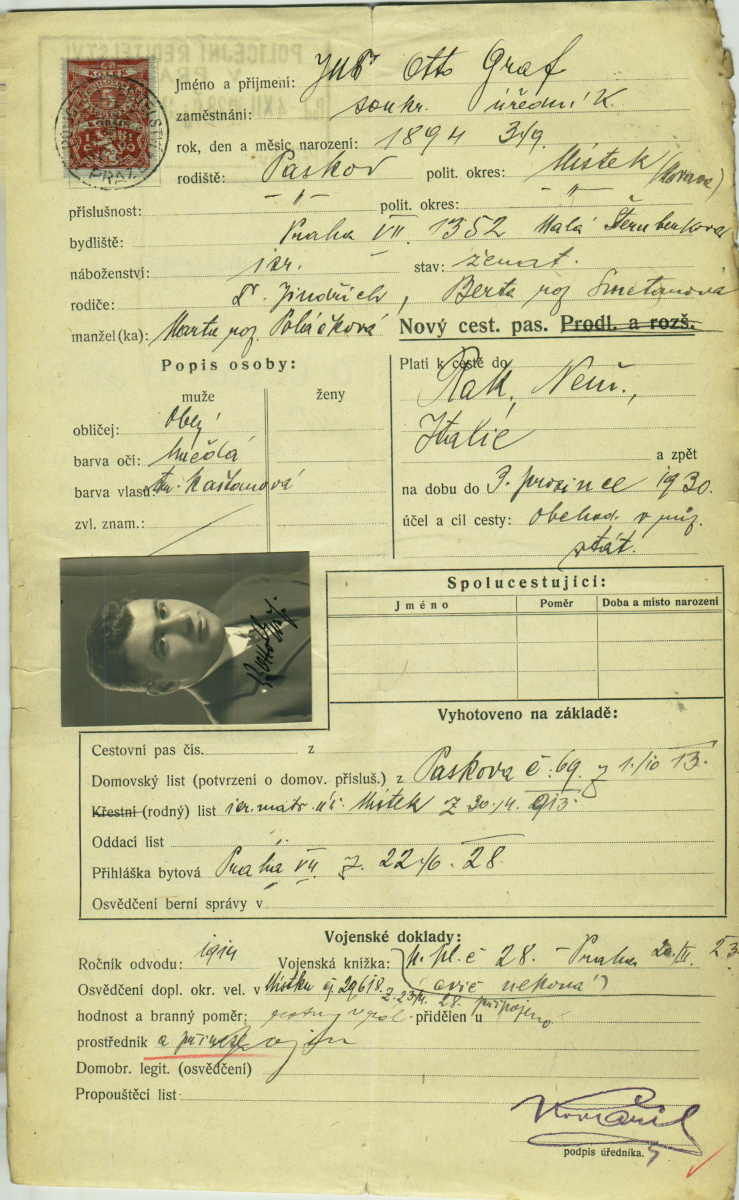 POLICEJNÍ ŘEDITELSTVÍ
Jméno a přijmeni: JUDr Otto Graf
zaměstnání: soukr. úředník.
rok, den a měsic narození: 1894 3/9.
rodiště: Paskov polit. okres: Místek (Morava)
příslušnost: – " – polit. okres: – " –
bydliště: Praha VII. 1352 Malá Šternberkova
náboženství: isr. stav: ženat.
rodiče: Dr. Jindřich, Berta roz Smetanová
manžel(ka): Marta roz. Poláčková Nový cest. pas. Prodl. a rozš.
Popis osoby:
muže ženy
obličej:
barva očí: hnědá
barva vlasů: tm. kaštanová
zvl. znam.:
Plati k cestě do
Rak, Něm.,
Italie
a zpět
na dobu do 3. prosince 1930.
účel a cíl cesty: obchod. v
stát.
Spolucestující:
Jméno Poměr Doba a místo narození
Vyhotoveno na základě:
Cestovní pas čís. z
Domovský list (potvrzení o domov. přísluš.) z Paskova č. 69. z 1./10 13.
Křestní (rodný) list isr. matr. úř. Místek z 30./4. 913.
Oddací list
Přihláška bytová Praha VII. z. 22/6. 28.
Osvědčení berní správy v
Vojenské doklady:
Ročník odvodu: 1914 Vojenská knížka: 28. – Praha 23.
Osvědčení dopl. okr. vel. v Místku čj. 29618 z 23/11. 28. připojeno (cvič nekoná)
hodnost a branný poměr: přidělen u
prostředník
Domobr. legit. (osvědčení)
Propouštěcí list
podpis úředníka.